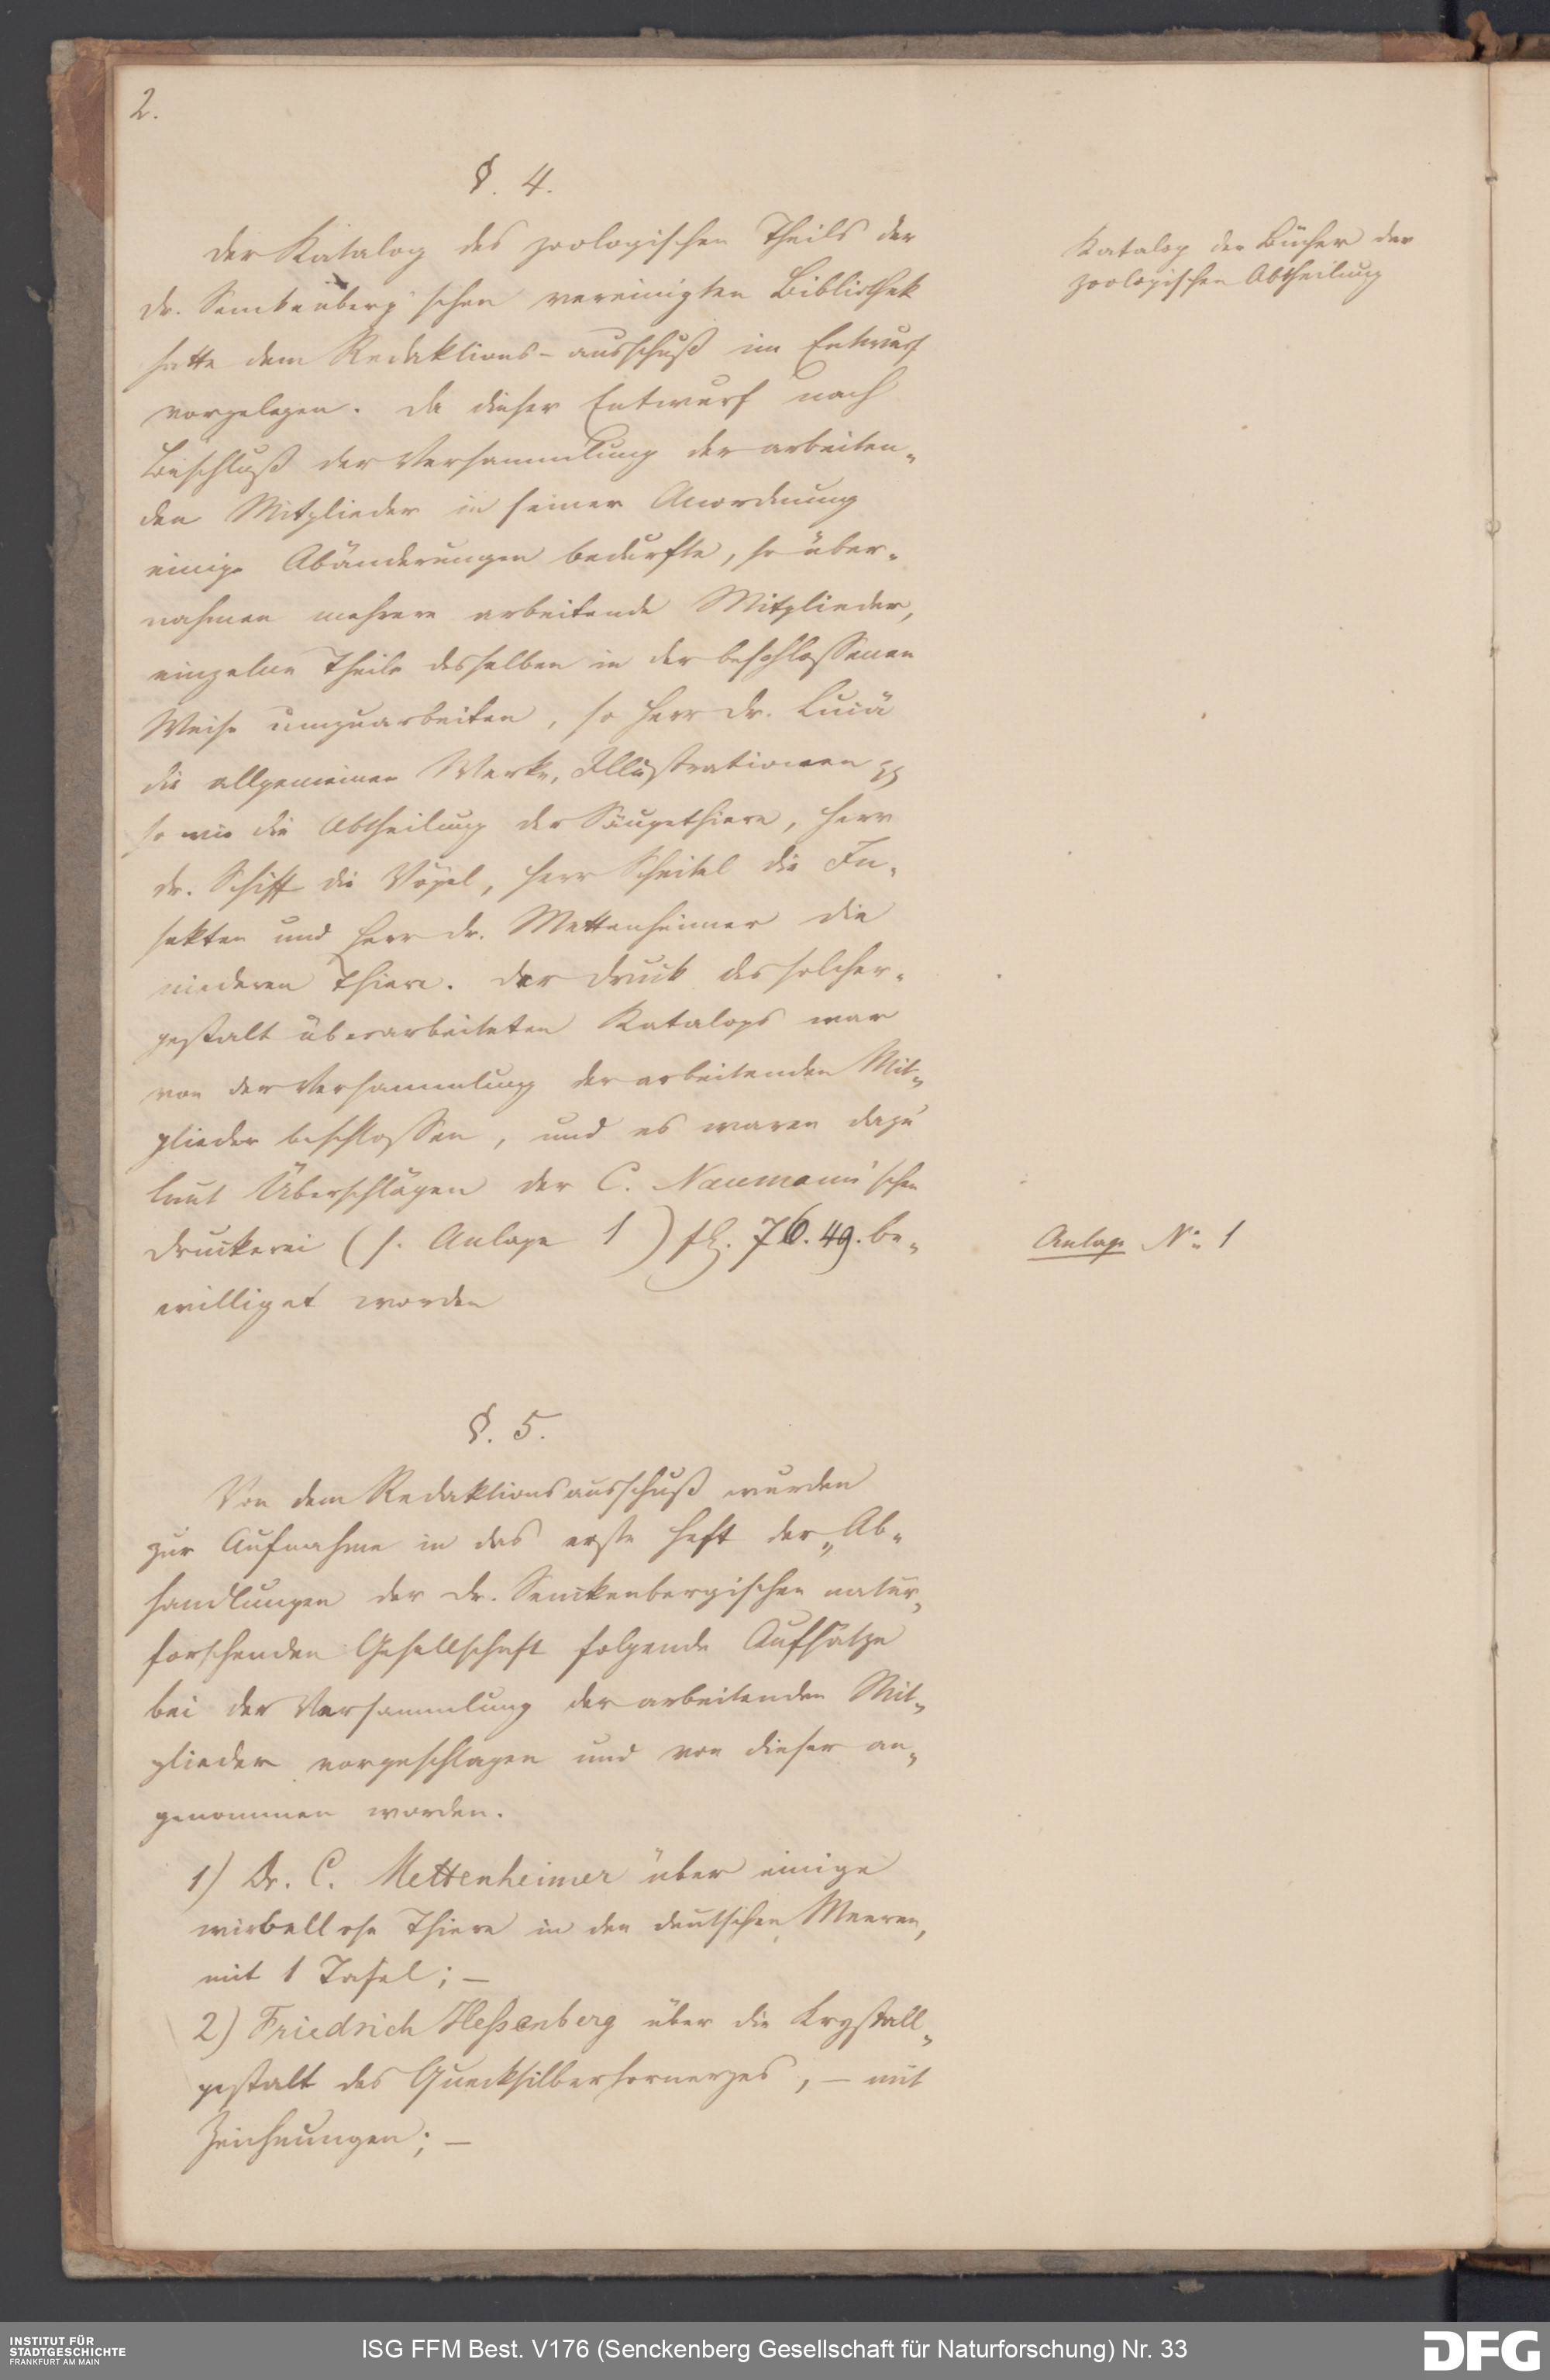 2.
§. 4.
Der Katalog des zoologischen Theils der
Dr. Senckenberg'schen vereinigten Bibliothek
hatte dem Redaktions-ausschuß im Entwurf
vorgelegen. Da dieser Entwurf nach
Beschluß der Versammlung der arbeiten„
den Mitglieder in seiner Anordnung
einige Abänderungen bedurfte, so über„
nahmen mehrere arbeitende Mitglieder,
einzelne Theile desselben in der beschlossenen
Weise umzuarbeiten, so Herr Dr. Lucä
die allgemeinen Werke, Illustrationen pp
so wie die Abtheilung der Säugethiere, Herr
Dr. Schiff die Vögel, Herr Scheitel die In„
sekten und Herr Dr. Mettenheimer die
niederen Thiere. Der Druck des solcher„
gestalt überarbeiteten Katalogs war
von der Versammlung der arbeitenden Mit„
glieder beschlossen, und es waren dazu
laut Überschlägen der C. Naumann'schen
Druckerei (s. Anlage 1) fl. 76.49. be„
williget worden
Katalog der Bücher der
zoologischen Abtheilung
Anlage No. 1
§. 5.
Von dem Redaktionsausschuß wurden
zur Aufnahme in das erste Heft der „Ab„
handlungen der Dr. Senckenbergischen natur„
forschenden Gesellschaft folgende Aufsätze
bei der Versammlung der arbeitenden Mit„
glieder vorgeschlagen und von dieser an„
genommen worden.
1) Dr. C. Mettenheimer über einige
wirbellose Thiere in den deutschen Meeren,
mit 1 Tafel; —
2) Friedrich Heßenberg über die Krystall„
gestalt des Quecksilberhornerzes, — mit
Zeichnungen; —
INSTITUT FÜR
STADTGESCHICHTE
FRANKFURT AM MAIN
ISG FFM Best. V176 (Senckenberg Gesellschaft für Naturforschung) Nr. 33
DFG